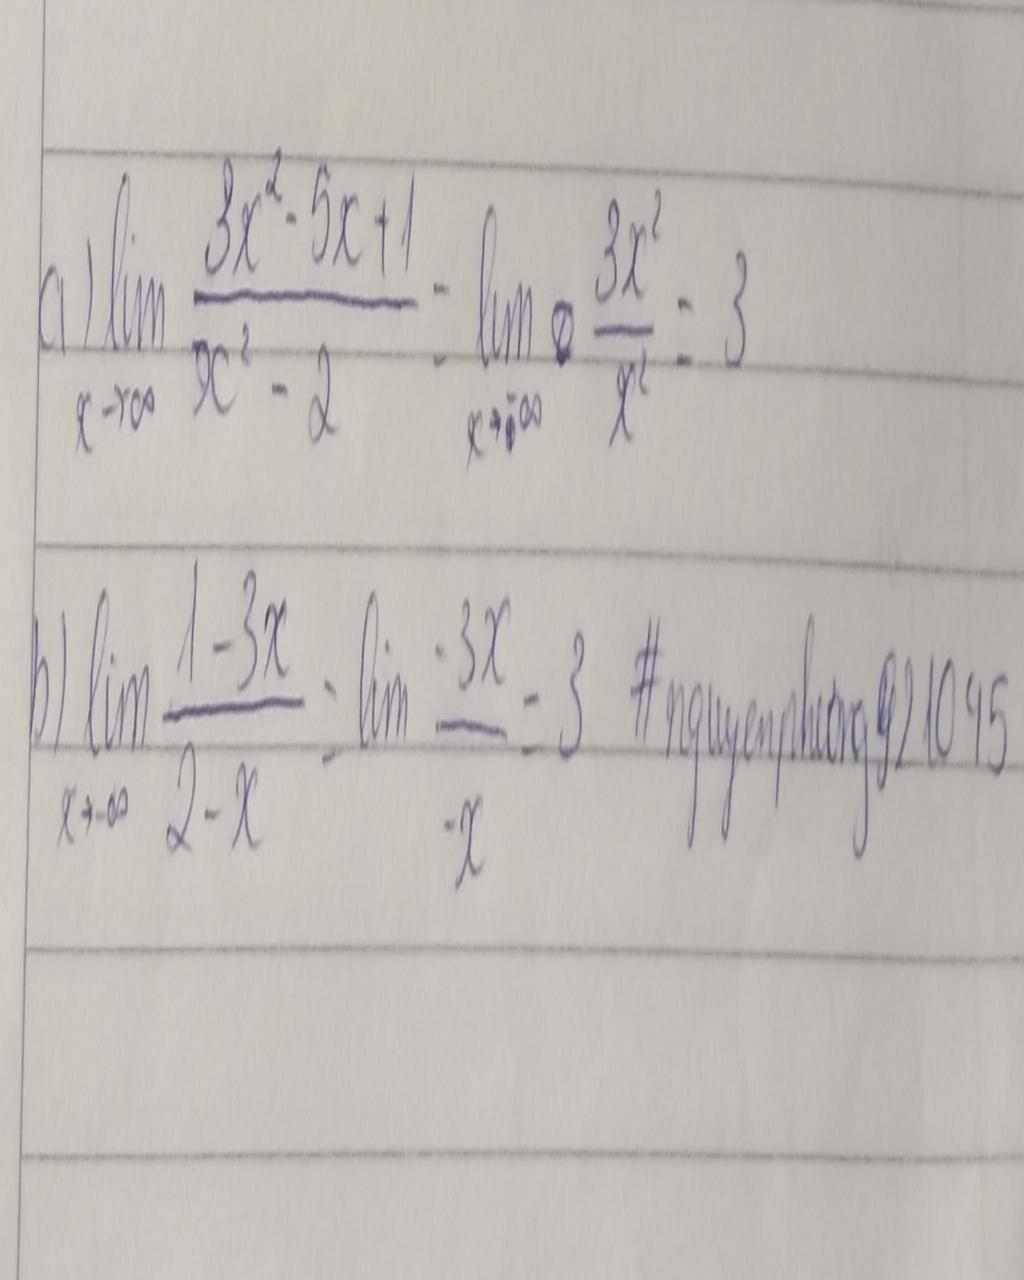 a) lim 3x² - 5x + 1 / x² - 2 = lim 3x² / x² = 3
x→∞ x→-∞
b) lim 1 - 3x / 2 - x = lim -3x / -x = 3 #nguyenphuong921045
x→-∞